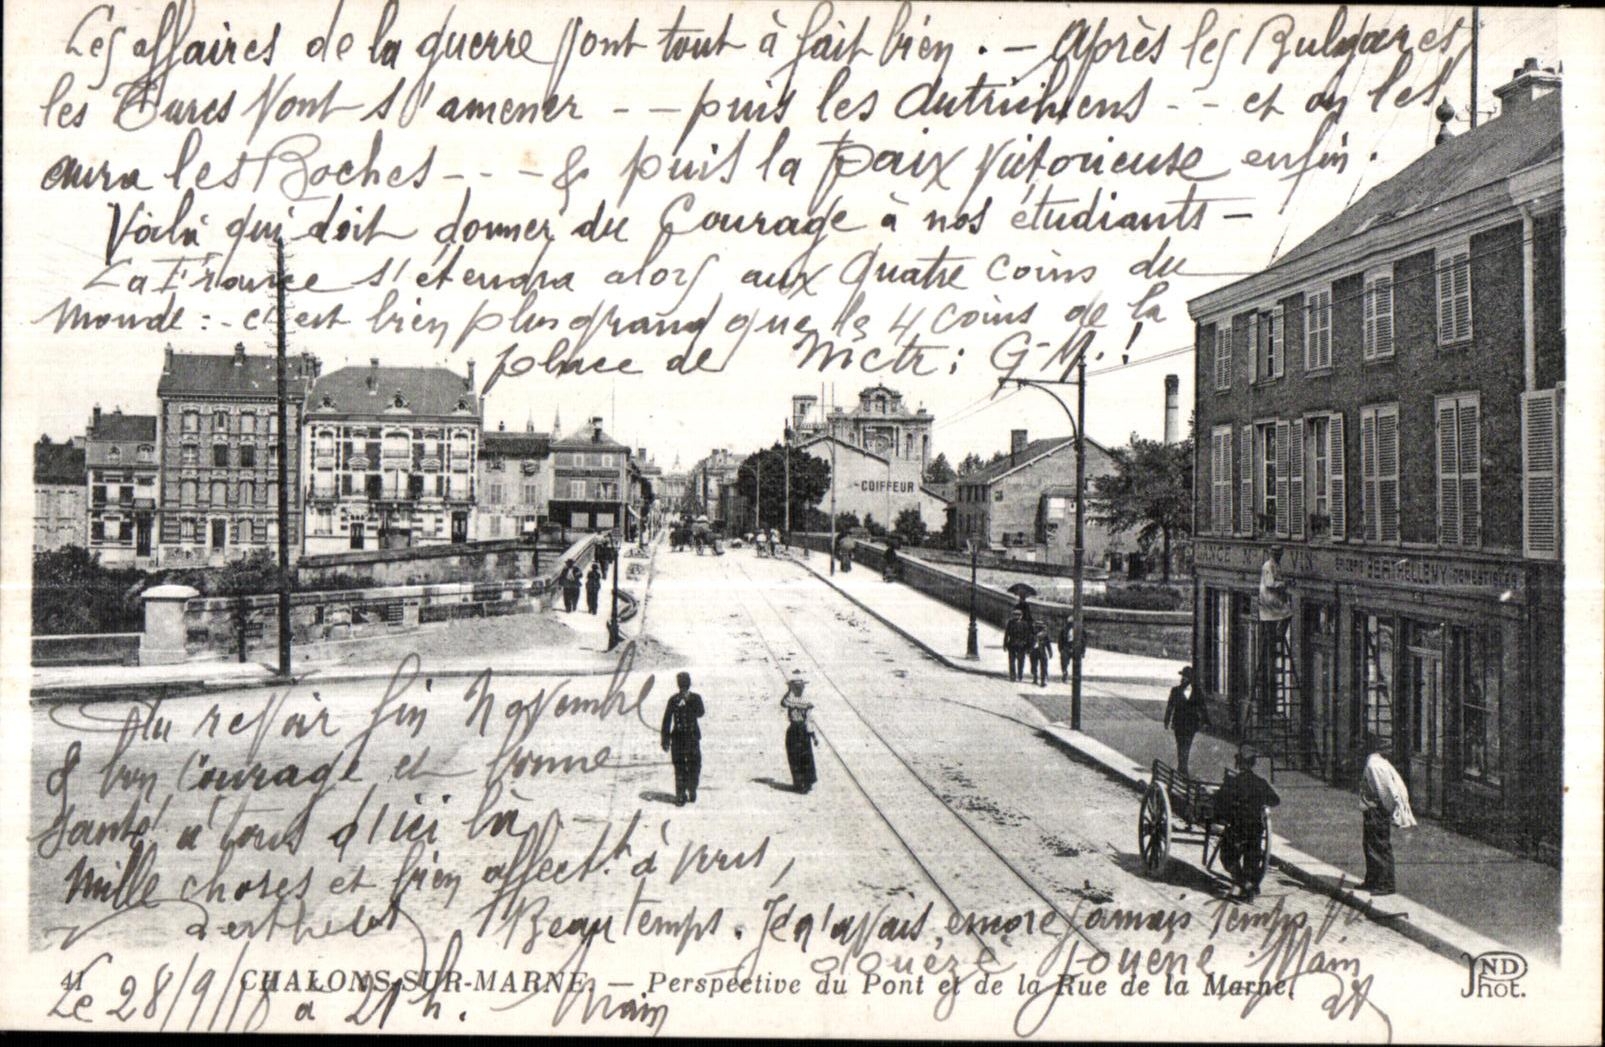 Les affaires de la guerre vont tout à fait bien. — Après les Bulgares
les Turcs vont s'amener - - puis les Autrichiens - - et on les
aura les Boches - - - & puis la paix victorieuse enfin.
Voilà qui doit donner du Courage à nos étudiants —
La France s'étendra alors aux Quatre coins du
monde : - c'est bien plus grand que les 4 coins de la
place de
COIFFEUR
BERTHELEMY
Au revoir fin Novembre
& bon Courage et bonne
santé à tous d'ici là
Mille choses et bien affect.t à vous,
Berthelot
Beau temps. Je n'avais encore jamais
41 CHALONS-SUR-MARNE. — Perspective du Pont et de la Rue de la Marne.
Le 28/9/18 à 21h.
ND Phot.